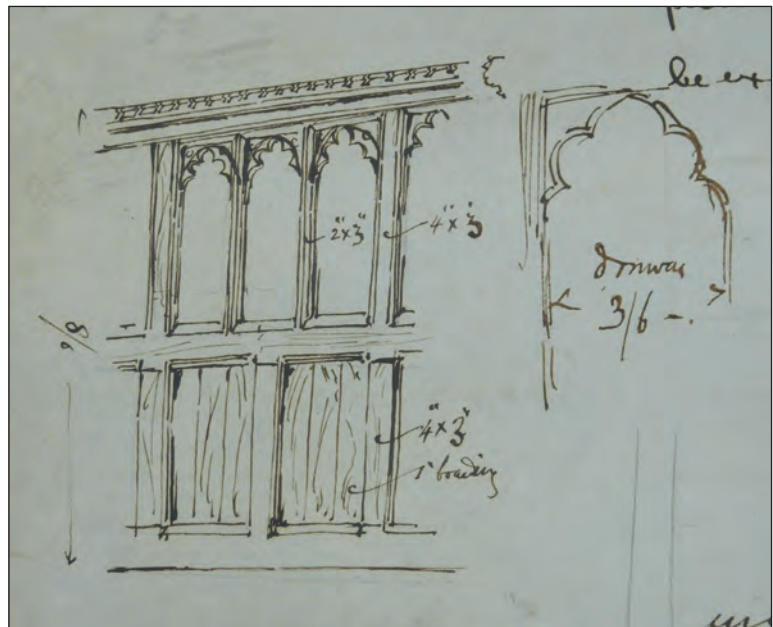 be ex
2"x3"
4"x3
doorway
3/6 -.
4"x3"
1" boarding